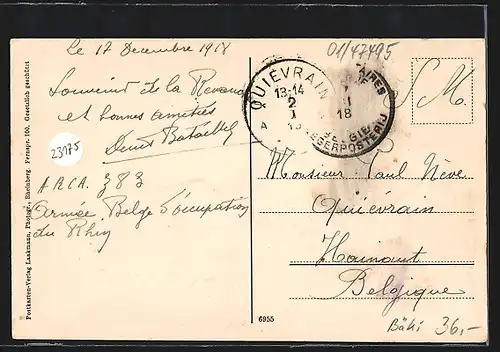 Le 17 Decembre 1918
Souvenir de la
et bonnes amitiés
Denis
23175
A.R.C.A. 383
Armée Belge d'occupation
du Rhin
01/47495
S.M.
QUIÉVRAIN
13-14
2
I
18
LEGERPOSTERIJ
Monsieur Paul Nève
Quiévrain
Hainaut
Belgique
6955
Bäki 36,-
Postkarten-Verlag Laakmann, Photogr., Rheinberg. Fernspr. 100. Gesetzlich geschützt